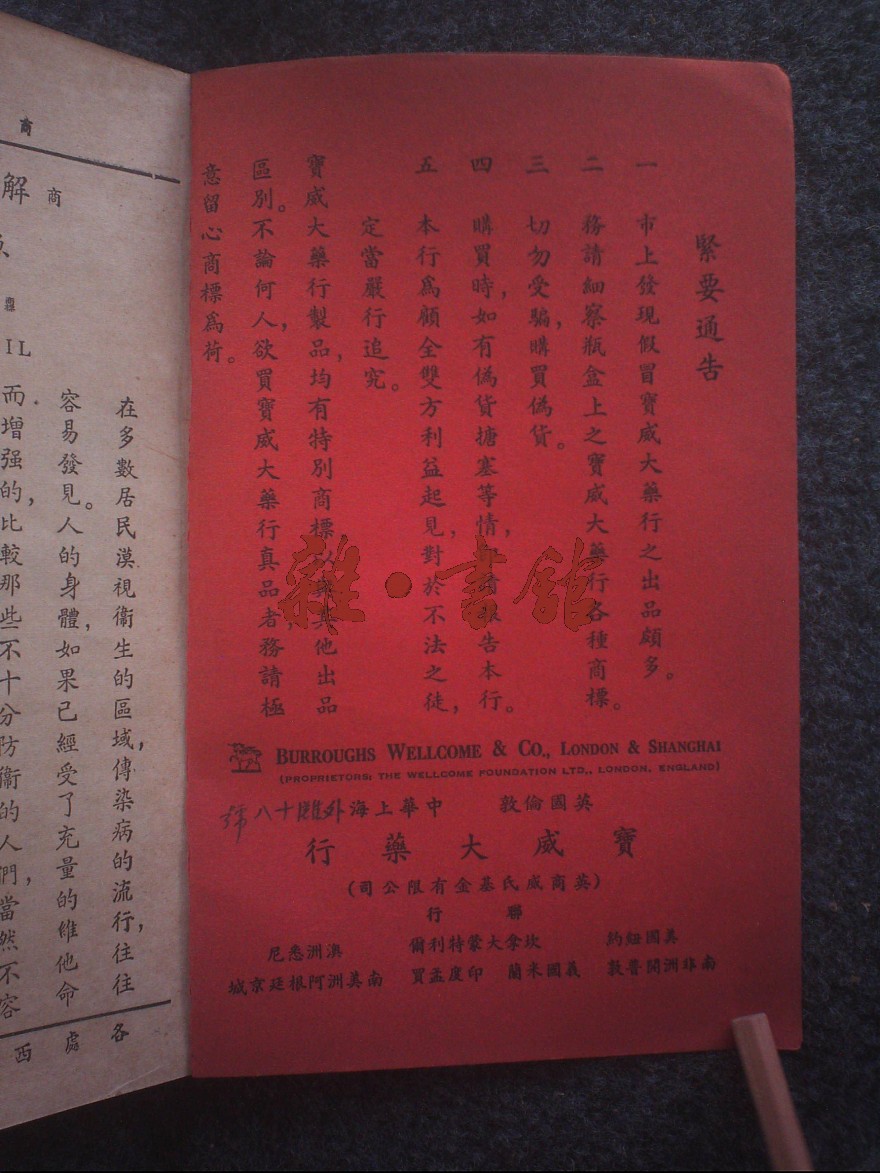 緊要通告
一 市上發現假冒寶威大藥行之出品頗多。
二 務請細察瓶盒上之寶威大藥行各種商標。
三 切勿受騙，購買偽貨。
四 購買時，如有偽貨搪塞等情，報告本行。
五 本行為顧全雙方利益起見，對於不法之徒，
定當嚴行追究。
寶威大藥行製品，均有特別商標，以其他出品
區別。不論何人，欲買寶威大藥行真品者，務請極
意留心商標為荷。
BURROUGHS WELLCOME & CO., LONDON & SHANGHAI
(PROPRIETORS: THE WELLCOME FOUNDATION LTD., LONDON, ENGLAND)
英國倫敦 中華上海外灘十八號
寶威大藥行
(英商威氏基金有限公司)
聯行
美國紐約 坎拿大蒙特利爾 澳洲悉尼
南非洲開普敦 義國米蘭 印度孟買 南美洲阿根廷京城
雜·書館
商
解 商
IL
在多數居民漠視衞生的區域，傳染病的流行，往往
容易發見。人的身體，如果已經受了充量的維他命
而增强的，比較那些不十分防衞的人們，當然不容
各處西